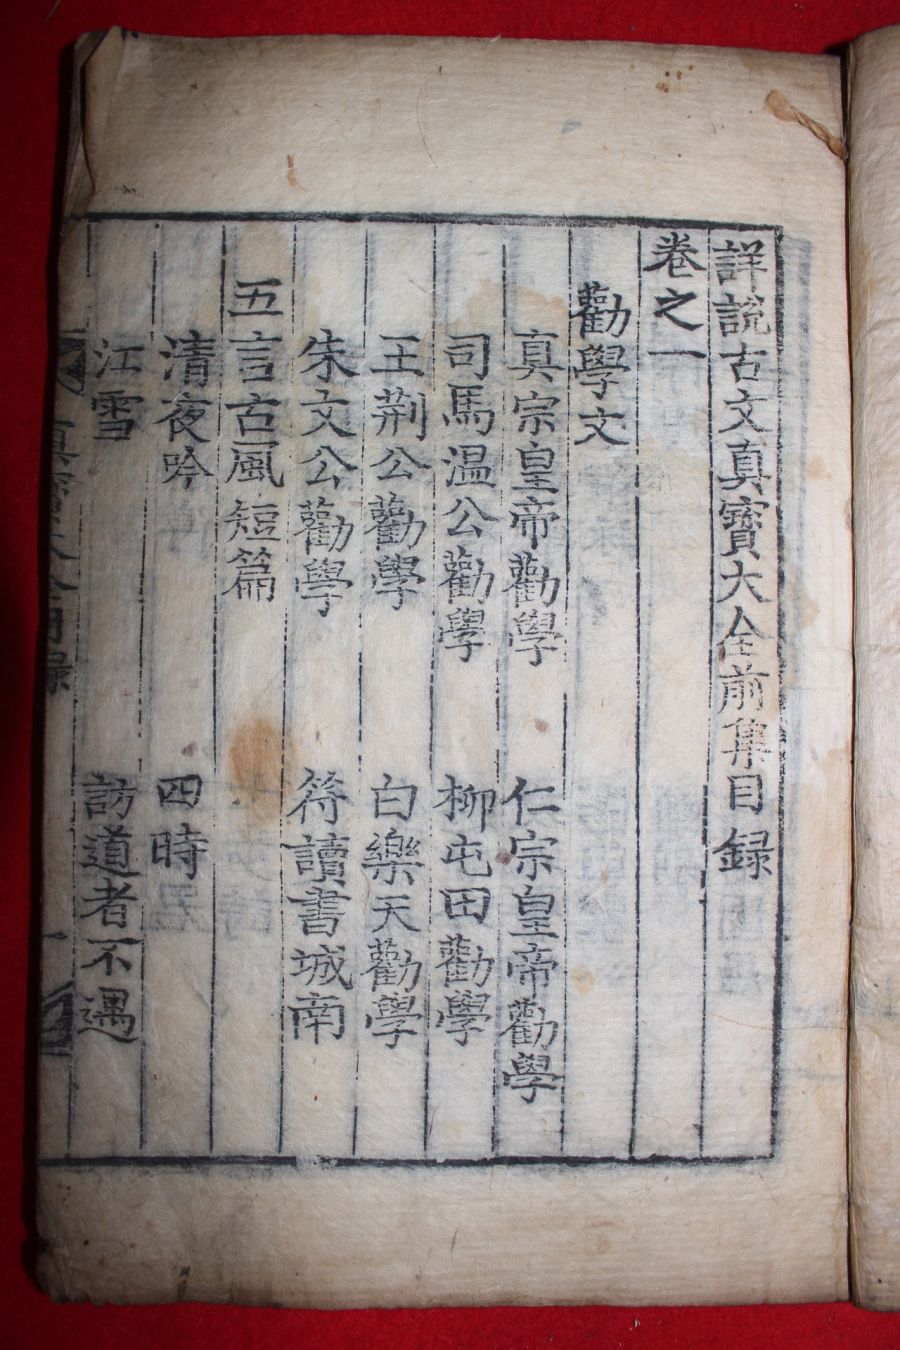 詳說古文真寶大全前集目錄
卷之一
勸學文
真宗皇帝勸學 仁宗皇帝勸學
司馬温公勸學 柳屯田勸學
王荆公勸學 白樂天勸學
朱文公勸學 符讀書城南
五言古風短篇
清夜吟 四時
江雪 訪道者不遇